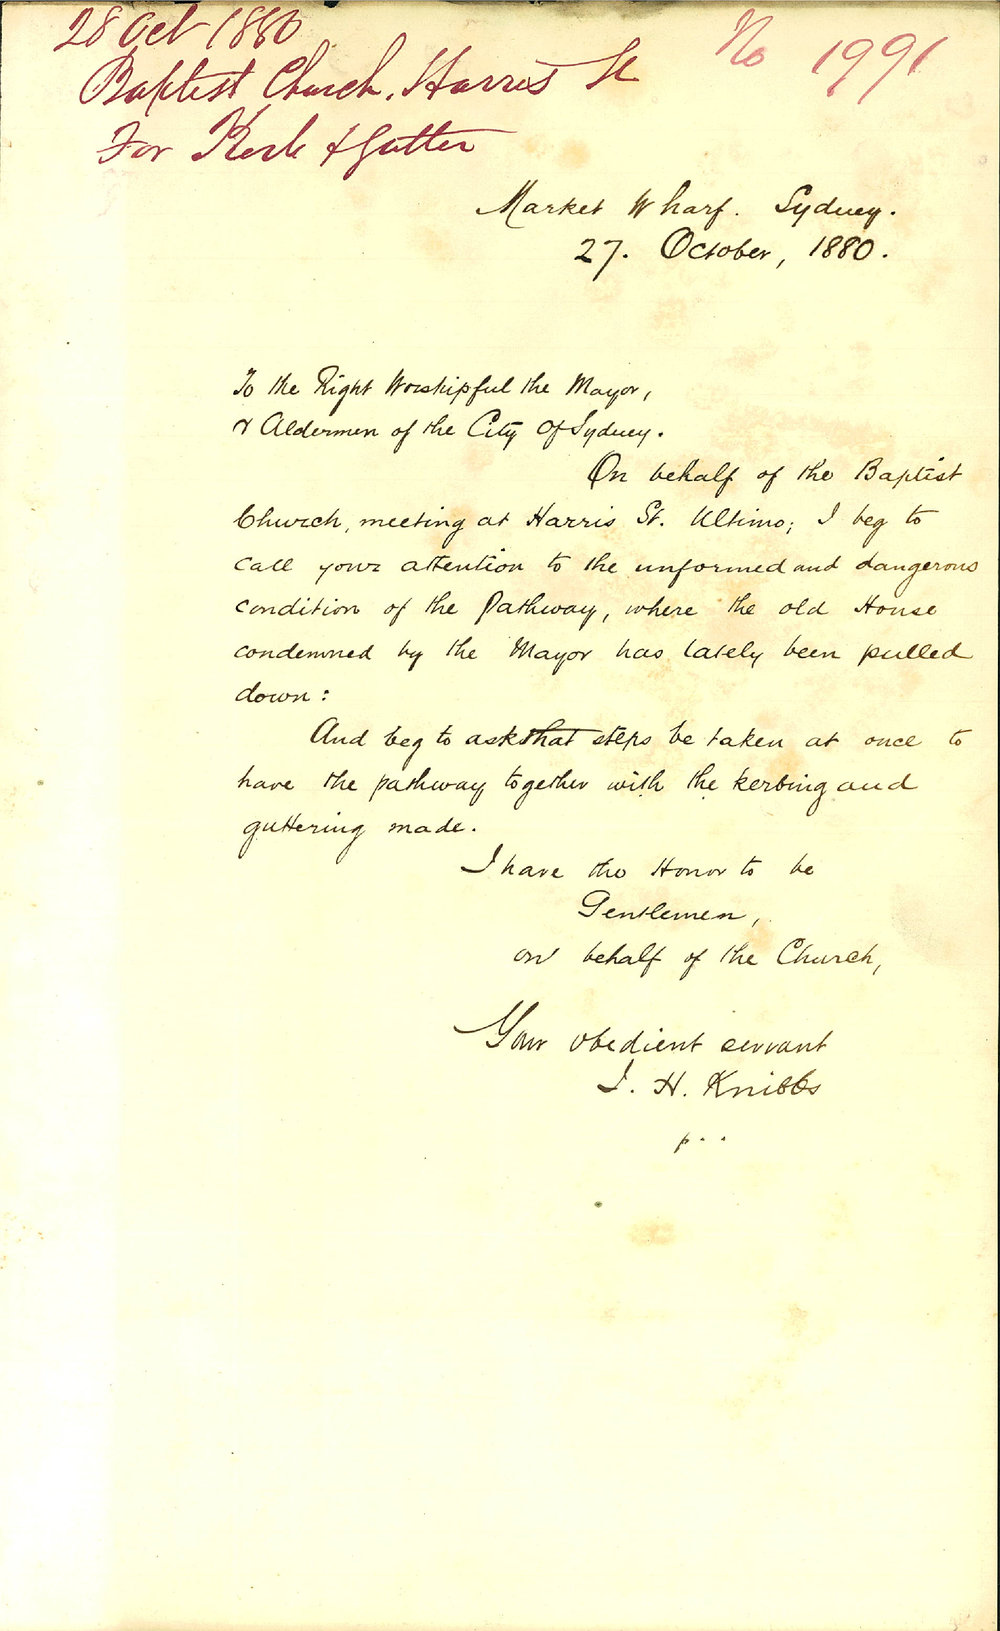 28 Oct 1880
No 1991
Baptist Church, Harris St
For Kerb & Gutter
Market Wharf. Sydney.
27. October, 1880.
To the Right Worshipful the Mayor,
& Aldermen of the City of Sydney.
On behalf of the Baptist
Church, meeting at Harris St. Ultimo; I beg to
call your attention to the unformed and dangerous
condition of the Pathway, where the old House
condemned by the Mayor has lately been pulled
down:
And beg to ask that steps be taken at once to
have the pathway together with the kerbing and
guttering made.
I have the Honor to be
Gentlemen,
on behalf of the Church,
Your obedient servant
J. H. Knibbs